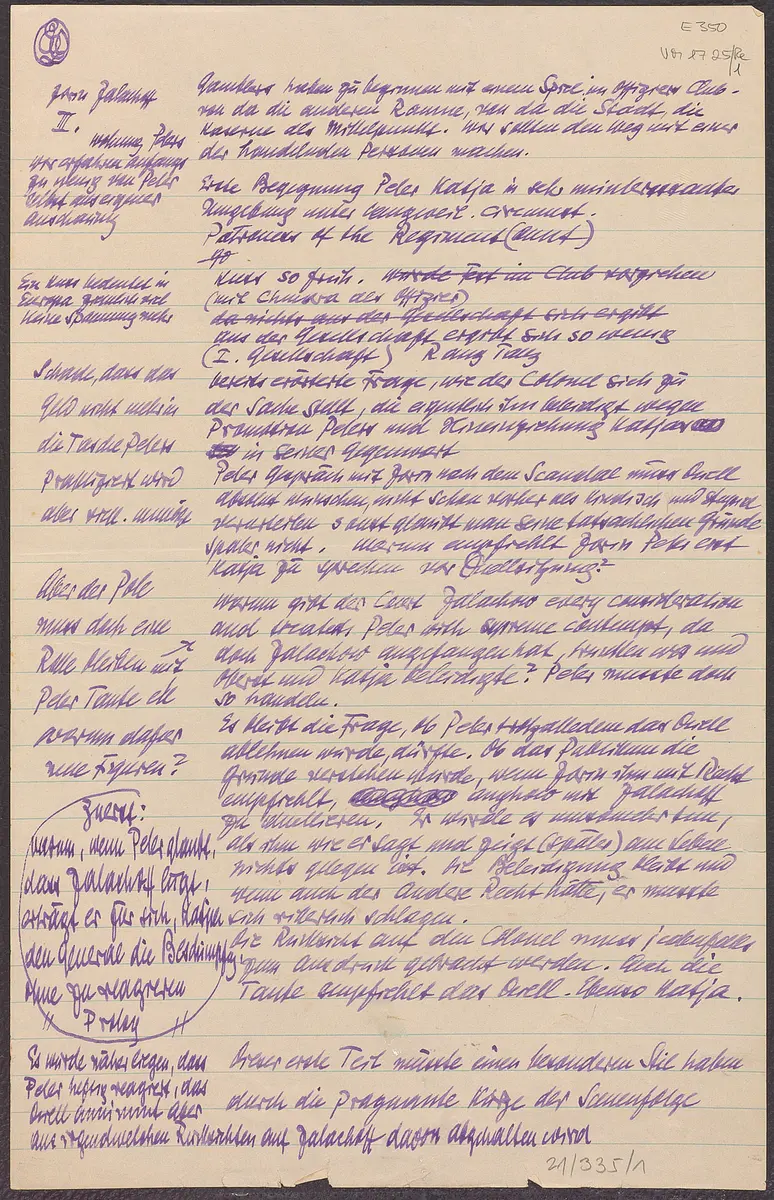 E 350
Jorin Zalanoff
III.
wohnung Peters
wir erfahren anfangs
zu wenig von Peter
selbst aus eigener
Anschauung
Ein Kuss bedeutet in
Europa
keine Spannung mehr
Schade, dass das
Geld nicht mehr in
die Tasche Peters
praktiziert wird
aber viell. unnötig
Aber der Pole
muss doch eine
Rolle bleiben mit
Peter Tante etc
warum dafür
neue Figuren?
Zuerst:
warum, wenn Peter glaubt,
dass Zalachoff lügt,
erträgt er für sich, Katja
den General die Beschimpfg.
ohne zu reagieren
" Prolog "
Es würde näher liegen, dass
Peter heftig reagiert, das
Duell annimmt aber
aus irgendwelchen Rücksichten auf Zalachoff davon abgehalten wird
Gamblers haben zu beginnen mit einem Spiel im Offiziers Club -
von da die anderen Räume, von da die Stadt, die
Kaserne als Mittelpunkt. Wir sollten den Weg mit einer
der handelnden Personen machen.
Erste Begegnung Peter Katja in sehr uninteressanter
Umgebung unter langweil. circumst.
Patroness of the Regiment (Aunt)
Kuss so früh. würde Test im Club vorziehen
(mit des Offizier)
da nichts aus der Gesellschaft sich ergibt
aus der Gesellschaft ergibt sich so wenig
(I. Gesellschaft)
bereits erörterte Frage, wie der Colonel sich zu
der Sache stellt, die eigentlich ihn beleidigt wegen
Promotion Peters und Hineinziehung Katjas
in seiner Gegenwart
Peter Gespräch mit Jorin nach dem Scandal muss Duell
absolut wünschen, nicht schon vorher als kindisch und stupid
verurteilen sonst glaubt man seine tatsächlichen Gründe
später nicht. Warum empfiehlt Jorin Peter erst
Katja zu sprechen vor Duellsitzung?
Warum gibt der Court Zalachow every consideration
and treated Peter with supreme contempt, da
doch Zalachow angefangen hat, und
Oberst und Katja beleidigte? Peter musste doch
so handeln.
Es bleibt die Frage, ob Peter trotzalledem das Duell
ablehnen würde, dürfte. Ob das Publikum die
Gründe verstehen würde, wenn Jorin ihm mit Recht
empfiehlt, mit Zalachoff
zu duellieren. Er würde es umsomehr tun,
als ihm wie er sagt und zeigt (später) am Leben
nichts gelegen ist. Die Beleidigung bleibt und
wenn auch der Andere Recht hätte, er müsste
sich ritterlich schlagen.
Die Rücksicht auf den Colonel muss jedenfalls
zum Ausdruck gebracht werden. Auch die
Tante empfiehlt das Duell. Ebenso Katja.
Dieser erste Teil müsste einen besonderen Stil haben
durch die prägnante Kürze der Scenenfolge
21/335/1